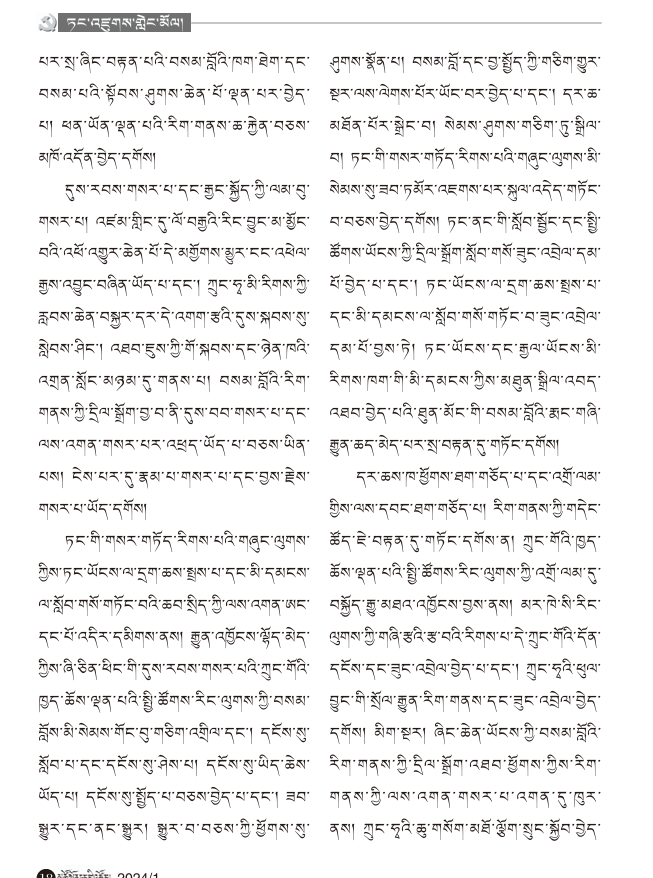 ཏང་འཛུགས་གླེང་མོལ།
པར་སྲ་ཞིང་བརྟན་པའི་བསམ་བློའི་ཁག་ཐེག་དང་
བསམ་པའི་སྟོབས་ཤུགས་ཆེན་པོ་ལྡན་པར་བྱེད་
པ། ཕན་ཡོན་ལྡན་པའི་རིག་གནས་ཆ་རྐྱེན་བཅས་
མཁོ་འདོན་བྱེད་དགོས།
དུས་རབས་གསར་པ་དང་རྒྱང་སྐྱོད་ཀྱི་ལམ་བུ་
གསར་པ། འཛམ་གླིང་དུ་ལོ་བརྒྱའི་རིང་བྱུང་མ་མྱོང་
བའི་འཕོ་འགྱུར་ཆེན་པོ་དེ་མགྱོགས་མྱུར་ངང་འཕེལ་
རྒྱས་འབྱུང་བཞིན་ཡོད་པ་དང་། ཀྲུང་ཧྭ་མི་རིགས་ཀྱི་
རླབས་ཆེན་བསྐྱར་དར་དེ་འགག་རྩའི་དུས་སྐབས་སུ་
སླེབས་ཤིང་། འཐབ་ཇུས་ཀྱི་གོ་སྐབས་དང་ཉེན་ཁའི་
འགྲན་སློང་མཉམ་དུ་གནས་པ། བསམ་བློའི་རིག་
གནས་ཀྱི་དྲིལ་སྒྲོག་བྱ་བ་ནི་དུས་བབ་གསར་པ་དང་
ལས་འགན་གསར་པར་འཕྲད་ཡོད་པ་བཅས་ཡིན་
པས། ངེས་པར་དུ་རྣམ་པ་གསར་པ་དང་བྱས་རྗེས་
གསར་པ་ཡོད་དགོས།
ཏང་གི་གསར་གཏོད་རིགས་པའི་གཞུང་ལུགས་
ཀྱིས་ཏང་ཡོངས་ལ་དྲག་ཆས་སྤྲས་པ་དང་མི་དམངས་
ལ་སློབ་གསོ་གཏོང་བའི་ཆབ་སྲིད་ཀྱི་ལས་འགན་ཨང་
དང་པོ་འདིར་དམིགས་ནས། རྒྱུན་འཁྱོངས་ལྷོད་མེད་
ཀྱིས་ཞི་ཅིན་ཕིང་གི་དུས་རབས་གསར་པའི་ཀྲུང་གོའི་
ཁྱད་ཆོས་ལྡན་པའི་སྤྱི་ཚོགས་རིང་ལུགས་ཀྱི་བསམ་
བློས་མི་སེམས་གོང་བུ་གཅིག་འགྲིལ་དང་། དངོས་སུ་
སློབ་པ་དང་དངོས་སུ་ཤེས་པ། དངོས་སུ་ཡིད་ཆེས་
ཡོད་པ། དངོས་སུ་སྤྱོད་པ་བཅས་བྱེད་པ་དང་། ཟབ་
སྒྱུར་དང་ནང་སྒྱུར། སྒྱུར་བ་བཅས་ཀྱི་ཕྱོགས་སུ་
ཤུགས་སྣོན་པ། བསམ་བློ་དང་བྱ་སྤྱོད་ཀྱི་གཅིག་གྱུར་
སྔར་ལས་ལེགས་པོར་ཡོང་བར་བྱེད་པ་དང་། དར་ཆ་
མཐོན་པོར་སྒྲེང་བ། སེམས་ཤུགས་གཅིག་ཏུ་སྒྲིལ་
བ། ཏང་གི་གསར་གཏོད་རིགས་པའི་གཞུང་ལུགས་མི་
སེམས་སུ་ཟབ་ཏམོར་འཇགས་པར་སྐུལ་འདེད་གཏོང་
བ་བཅས་བྱེད་དགོས། ཏང་ནང་གི་སློབ་སྦྱོང་དང་སྤྱི་
ཚོགས་ཡོངས་ཀྱི་དྲིལ་སྒྲོག་སློབ་གསོ་ཟུང་འབྲེལ་དམ་
པོ་བྱེད་པ་དང་། ཏང་ཡོངས་ལ་དྲག་ཆས་སྤྲས་པ་
དང་མི་དམངས་ལ་སློབ་གསོ་གཏོང་བ་ཟུང་འབྲེལ་
དམ་པོ་བྱས་ཏེ། ཏང་ཡོངས་དང་རྒྱལ་ཡོངས་མི་
རིགས་ཁག་གི་མི་དམངས་ཀྱིས་མཐུན་སྒྲིལ་འབད་
འཐབ་བྱེད་པའི་ཐུན་མོང་གི་བསམ་བློའི་རྨང་གཞི་
རྒྱུན་ཆད་མེད་པར་སྲ་བརྟན་དུ་གཏོང་དགོས།
དར་ཆས་ཁ་ཕྱོགས་ཐག་གཅོད་པ་དང་འགྲོ་ལམ་
གྱིས་ལས་དབང་ཐག་གཅོད་པ། རིག་གནས་ཀྱི་གདེང་
ཚོད་ཇེ་བརྟན་དུ་གཏོང་དགོས་ན། ཀྲུང་གོའི་ཁྱད་
ཆོས་ལྡན་པའི་སྤྱི་ཚོགས་རིང་ལུགས་ཀྱི་འགྲོ་ལམ་དུ་
བསྐྱོད་རྒྱུ་མཐའ་འཁྱོངས་བྱས་ནས། མར་ཁེ་སི་རིང་
ལུགས་ཀྱི་གཞི་རྩའི་རྩ་བའི་རིགས་པ་དེ་ཀྲུང་གོའི་དོན་
དངོས་དང་ཟུང་འབྲེལ་བྱེད་པ་དང་། ཀྲུང་ཧྭའི་ཕུལ་
བྱུང་གི་སྲོལ་རྒྱུན་རིག་གནས་དང་ཟུང་འབྲེལ་བྱེད་
དགོས། མིག་སྔར། ཞིང་ཆེན་ཡོངས་ཀྱི་བསམ་བློའི་
རིག་གནས་ཀྱི་དྲིལ་སྒྲོག་འཐབ་ཕྱོགས་ཀྱིས་རིག་
གནས་ཀྱི་ལས་འགན་གསར་པ་འགན་དུ་ཁུར་
ནས། ཀྲུང་ཧྭའི་ཆུ་གསོག་མཐོ་ལྕོག་སྲུང་སྐྱོབ་བྱེད་
2024/1